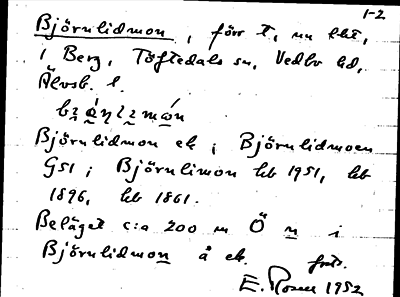 1-2
Björnlidmon, förr t, nu lht,
i Berg, Töftedals sn, Vedbo hd,
Älvsb. l.
Björnlidmon ek; Björnlidmoen
GS1; Björnlimon hb 1951, hb
1896, hb 1861.
Beläget c:a 200 m Ö n i
Björnlidmon å ek. forts.
E. Rosen 1952